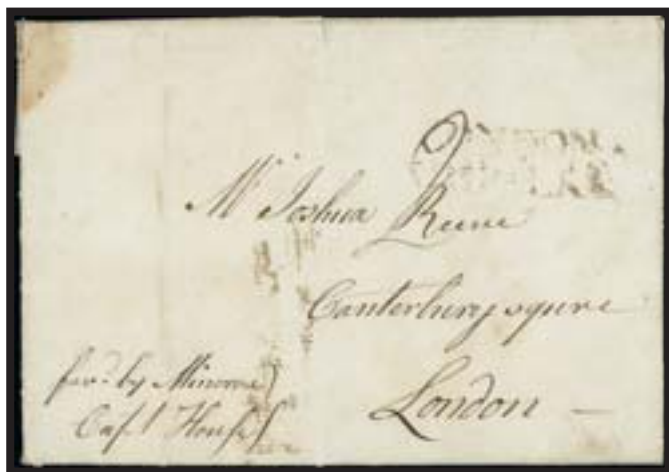 2
Mr Joshua Reeve
Canterbury squere
London
favd by Minerva
Capt